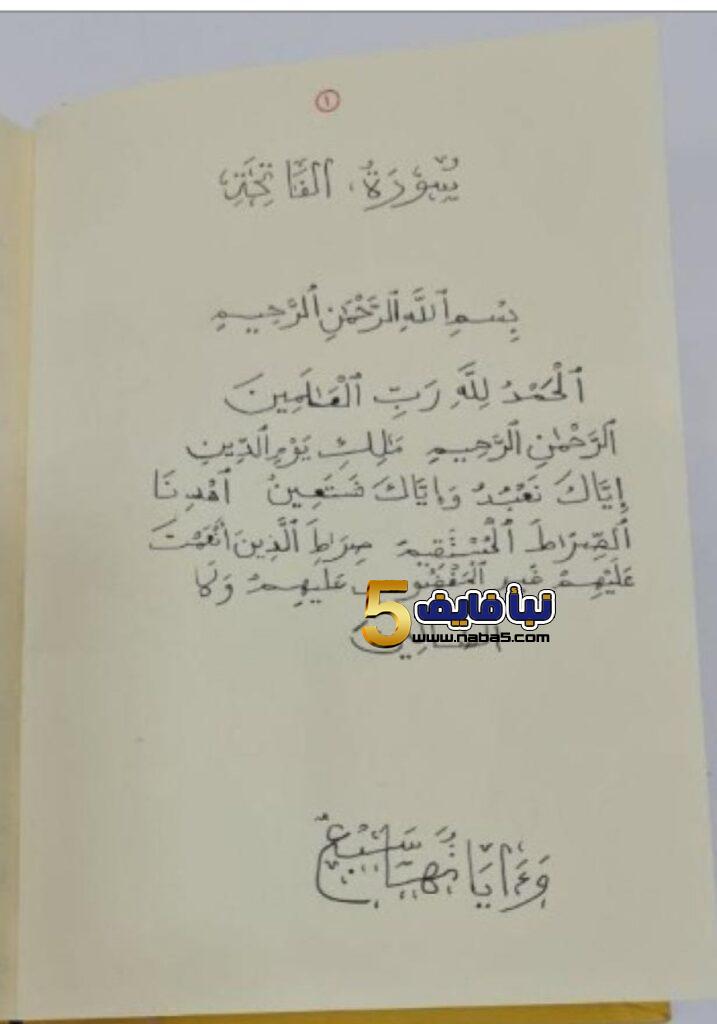 ١
سُورَةُ، الفَاتِحَةِ
بِسْمِ ٱللَّهِ ٱلرَّحْمَٰنِ ٱلرَّحِيمِ
ٱلْحَمْدُ لِلَّهِ رَبِّ ٱلْعَٰلَمِينَ
ٱلرَّحْمَٰنِ ٱلرَّحِيمِ مَٰلِكِ يَوْمِ ٱلدِّينِ
إِيَّاكَ نَعْبُدُ وَإِيَّاكَ نَسْتَعِينُ ٱهْدِنَا
ٱلصِّرَاطَ ٱلْمُسْتَقِيمَ صِرَاطَ ٱلَّذِينَ أَنْعَمْتَ
عَلَيْهِمْ غَيْرِ عَلَيْهِمْ وَلَا
نبأ فايف 5
www.naba5.com
وَءَايَاتُهَا سَبْعٌ